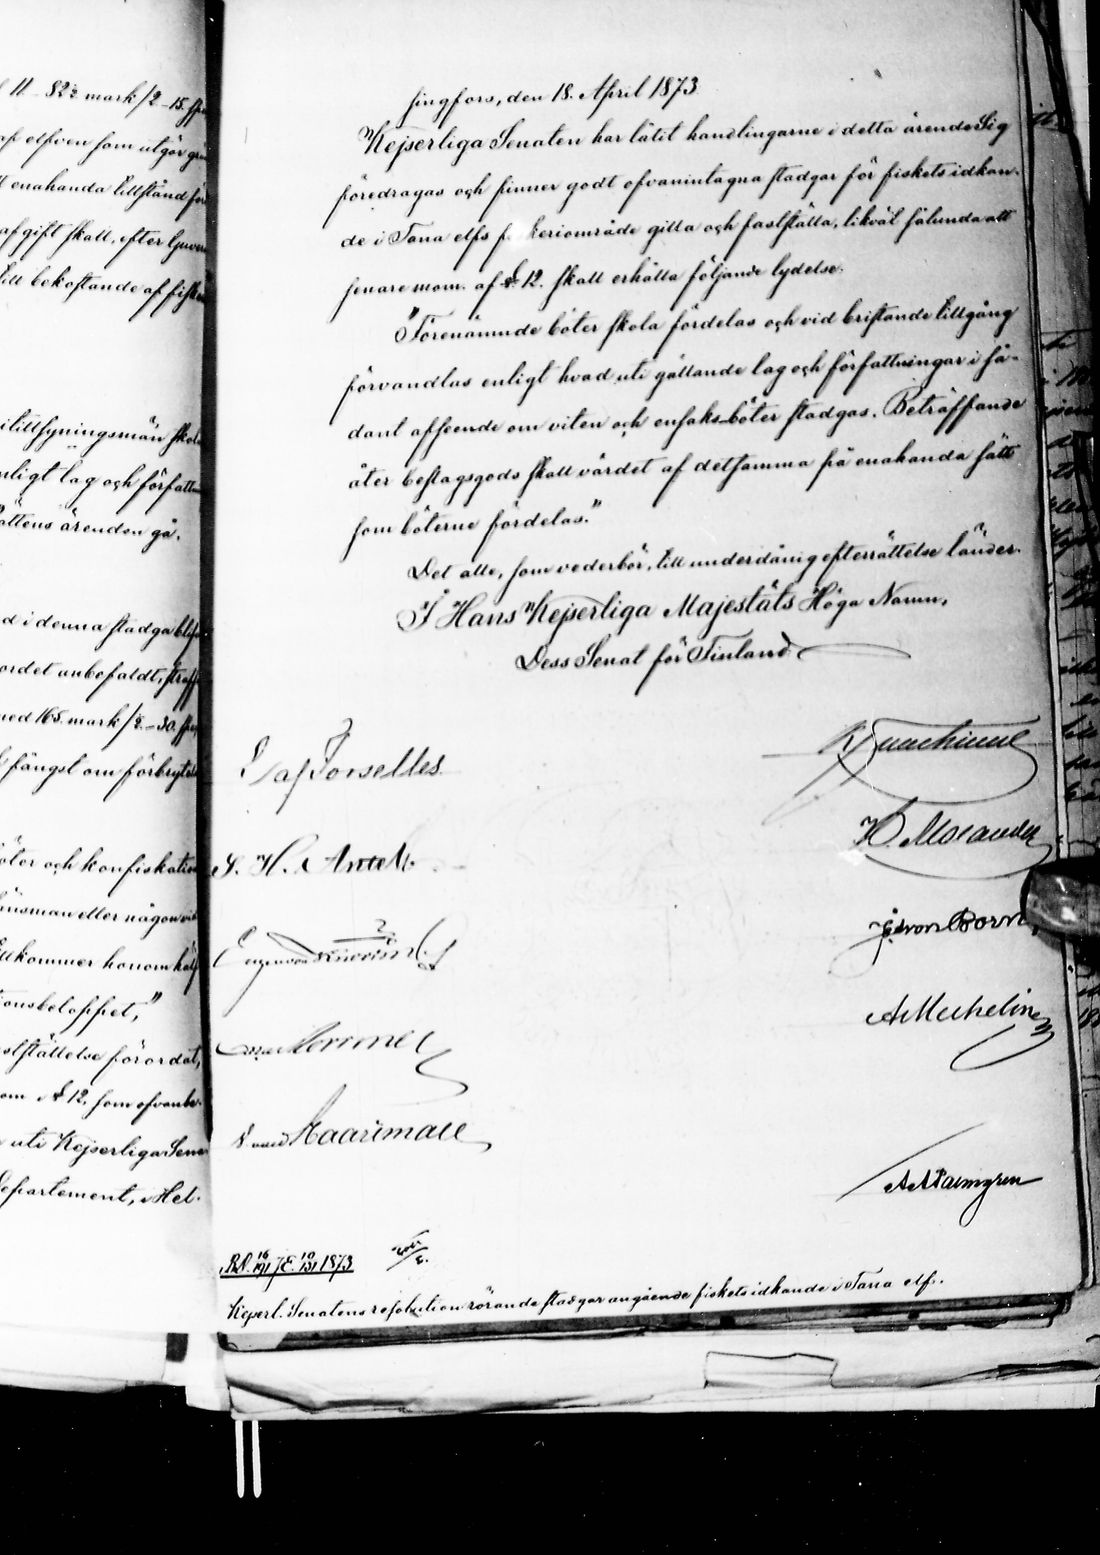 11 - 82½ mark /2 - 15. spe
af elfven som utgör grä
enahanda tillstånd för
afgift skall, efter ljuven
till bekostande af fisk
itillsyningsmän skol
nligt lag och författn
ättens ärenden gå.
d i denna stadga blif
ordet anbefaldt, straff
med 165. mark /2 - 30. spe
fångst om förbrytel
öter och konfiskation
länsman eller någon vid
illkommer honom half
ionsbeloppet,"
stställelse förordat,
om § 12, som ofvanbe-
uti Kejserliga Sena
Departement, i Hel-
singfors, den 18. April 1873.
Kejserliga Senaten har låtit handlingarne i detta ärende Sig
föredragas och finner godt ofvanintagna stadgar för fiskets idkan-
de i Tana elfs keriområde gilla och fastställa, likväl sålunda att
senare mom. af § 12. skall erhålla följande lydelse:
"Förenämnde böter skola fördelas och vid bristande tillgång
förvandlas enligt hvad uti gällande lag och författningar i så-
dant afseende om viten och ensaks-böter stadgas. Beträffande
åter beslagsgods skall värdet af detsamma på enahanda sätt
som böterne fördelas."
Det alle, som vederbör, till underdånig efterrättelse länder.
I Hans Kejserliga Majestäts Höga Namn,
Dess Senat för Finland
af Forselles
H. Molander
S. H. Antell
von Born
A Mechelin
von Haartman
A. Palmgren
R.D. 16/191 J.E. 10/131 1873
Kejserl. Senatens resolution rörande stadgar angående fiskets idkande i Tana elf.